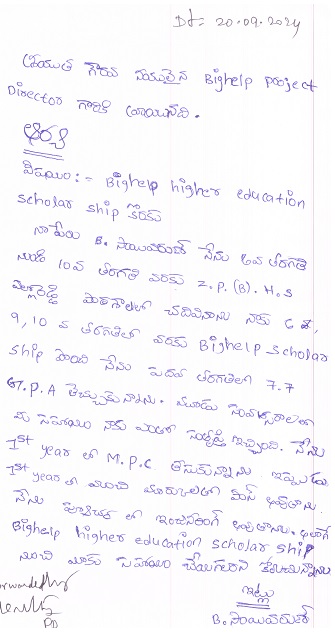 Dt- 20.09.2024
శ్రీయుత గౌరవనీయులైన Bighelp project
Director గారికి వ్రాయునది.
ఆర్యా
విషయం :- Bighelp higher education
scholar ship కొరకు
నా పేరు B. సాయివరుణ్ నేను 6వ తరగతి
నుండి 10వ తరగతి వరకు Z.P.(B).H.S
పాఠశాలలో చదివినాను నాకు 6 8,
9, 10 వ తరగతిలో వరకు Bighelp scholar
ship పొంది నేను పదవ తరగతిలో 7.7
G.P.A తెచ్చుకున్నాను. మూడు సంవత్సరాలలో
మీ సహాయం నాకు ఎంతో సంతృప్తి ఇచ్చింది. నేను
1st year లో M.P.C తీసుకున్నాను ఇప్పుడు
1st year లో మంచి మార్కులతో పాస్ అవుతాను.
నేను లో ఇంజనీరింగ్ అవుతాను. అలాగే
Bighelp higher education scholar ship
నుంచి నాకు సహాయం చేయగలరని కోరుచున్నాను
ఇట్లు
B. సాయివరుణ్
Forwarded by
PD